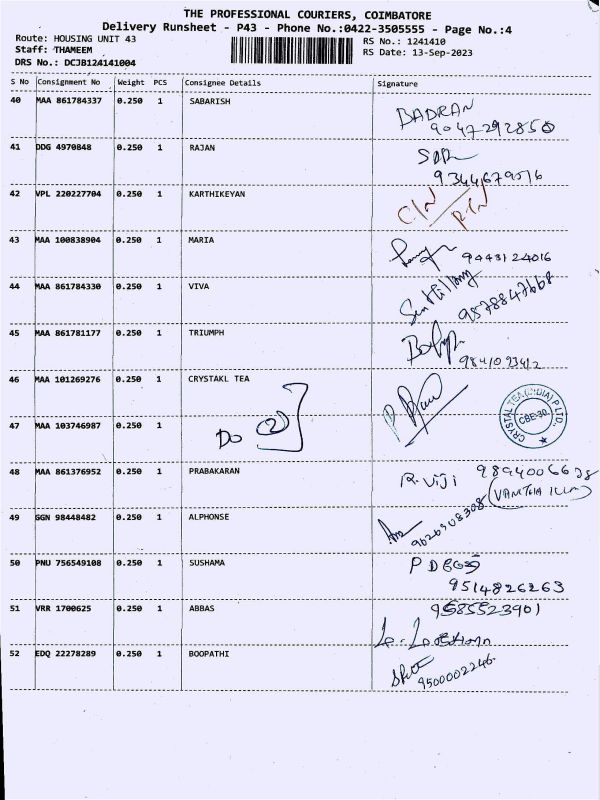 THE PROFESSIONAL COURIERS, COIMBATORE
Delivery Runsheet - P43 - Phone No.:0422-3505555 - Page No.:4
Route: HOUSING UNIT 43 RS No.: 1241410
Staff: THAMEEM RS Date: 13-Sep-2023
DRS No.: DCJB124141004
S No Consignment No Weight PCS Consignee Details Signature
40 MAA 861784337 0.250 1 SABARISH BADRAN
9047292850
41 DDG 4970848 0.250 1 RAJAN
9344679516
42 VPL 220227704 0.250 1 KARTHIKEYAN C/N R.T.N
43 MAA 100838904 0.250 1 MARIA 9443124016
44 MAA 861784330 0.250 1 VIVA 9578847668
45 MAA 861781177 0.250 1 TRIUMPH
46 MAA 101269276 0.250 1 CRYSTAKL TEA
CRYSTAL TEA (INDIA) P LTD.
CBE-30
47 MAA 103746987 Do 2
48 MAA 861376952 0.250 1 PRABAKARAN R. Viji 9894006628
49 GGN 98448482 0.250 1 ALPHONSE
50 PNU 756549108 0.250 1 SUSHAMA
9514826263
51 VRR 1700625 0.250 1 ABBAS 9585523901
52 EDQ 22278289 0.250 1 BOOPATHI 9500002246